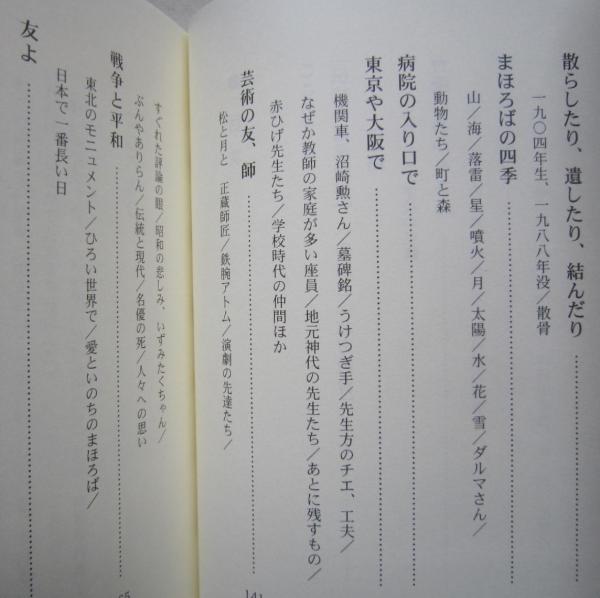 散らしたり、遺したり、結んだり
一九〇四年生、一九八八年没／散骨
まほろばの四季
山／海／落雷／星／噴火／月／太陽／水／花／雪／ダルマさん／
動物たち／町と森
病院の入り口で
東京や大阪で
機関車、沼崎勲さん／墓碑銘／うけつぎ手／先生方のチエ、工夫／
なぜか教師の家庭が多い座員／地元神代の先生たち／あとに残すもの／
赤ひげ先生たち／学校時代の仲間ほか
芸術の友、師
141
松と月と 正蔵師匠／鉄腕アトム／演劇の先達たち／
すぐれた評論の眼／昭和の悲しみ、いずみたくちゃん／
ぶんやありらん／伝統と現代／名優の死／人々への思い
戦争と平和
東北のモニュメント／ひろい世界で／愛といのちのまほろば／
日本で一番長い日
友よ